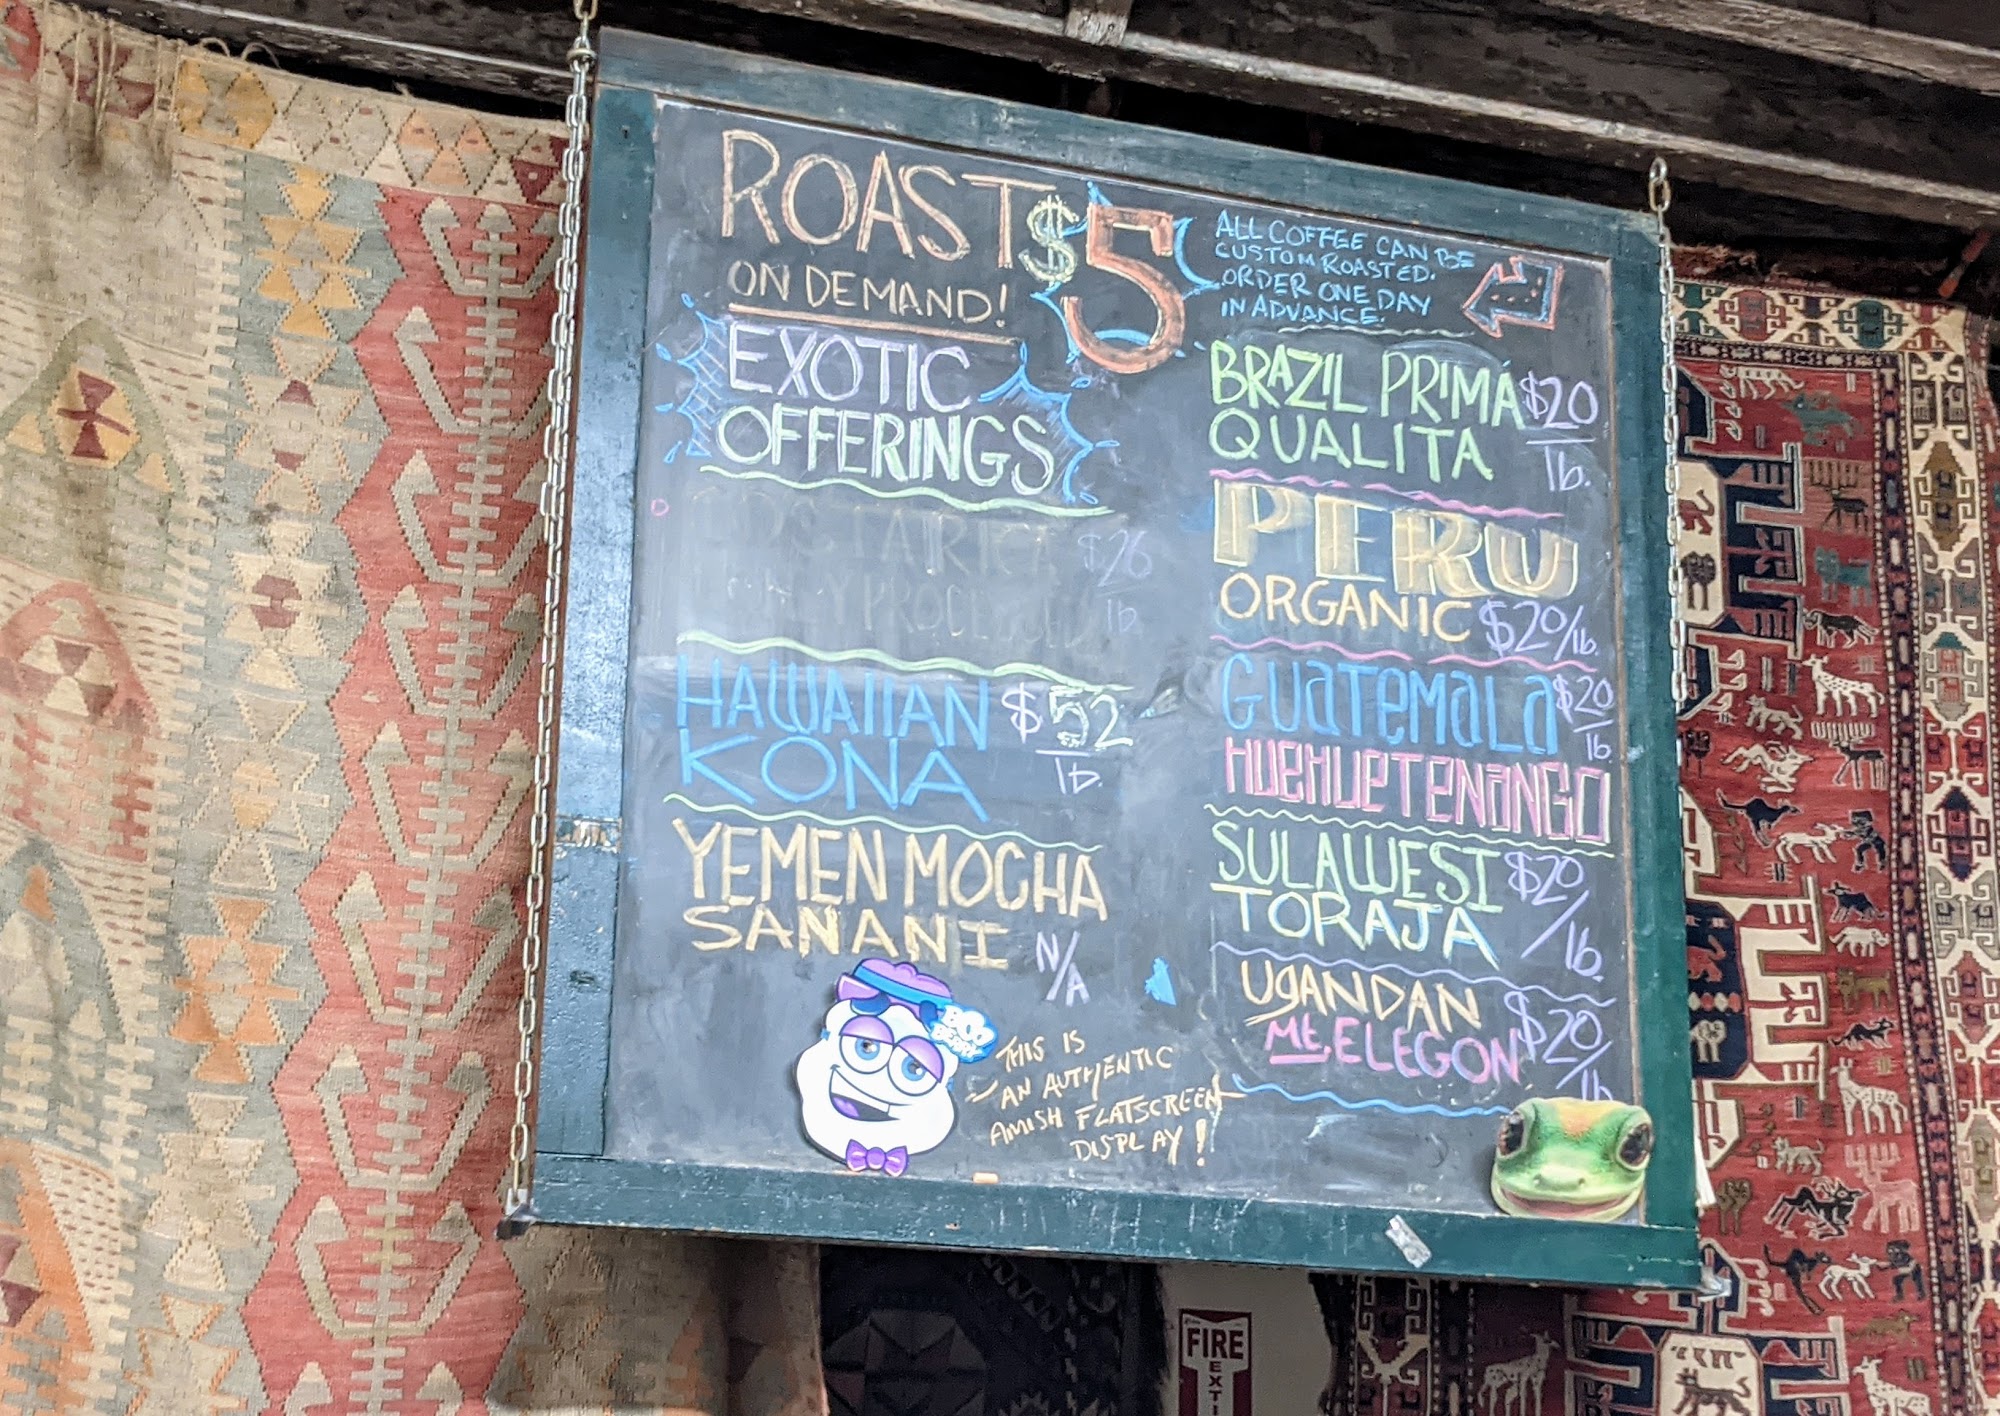 ROAST $5
ON DEMAND!
ALL COFFEE CAN BE
CUSTOM ROASTED.
ORDER ONE DAY
IN ADVANCE.
EXOTIC
OFFERINGS
COSTA RICA $26
HONEY PROCESSED lb
HAWAIIAN $52
KONA lb.
YEMEN MOCHA
SANANI N/A
BRAZIL PRIMA $20
QUALITA lb.
PERU
ORGANIC $20/lb.
GUATEMALA $20
HUEHUETENANGO lb.
SULAWESI $20
TORAJA /lb.
UGANDAN $20
Mt. ELEGON /lb
BOO
BERRY
THIS IS
AN AUTHENTIC
AMISH FLATSCREEN
DISPLAY!
FIRE
EXTI